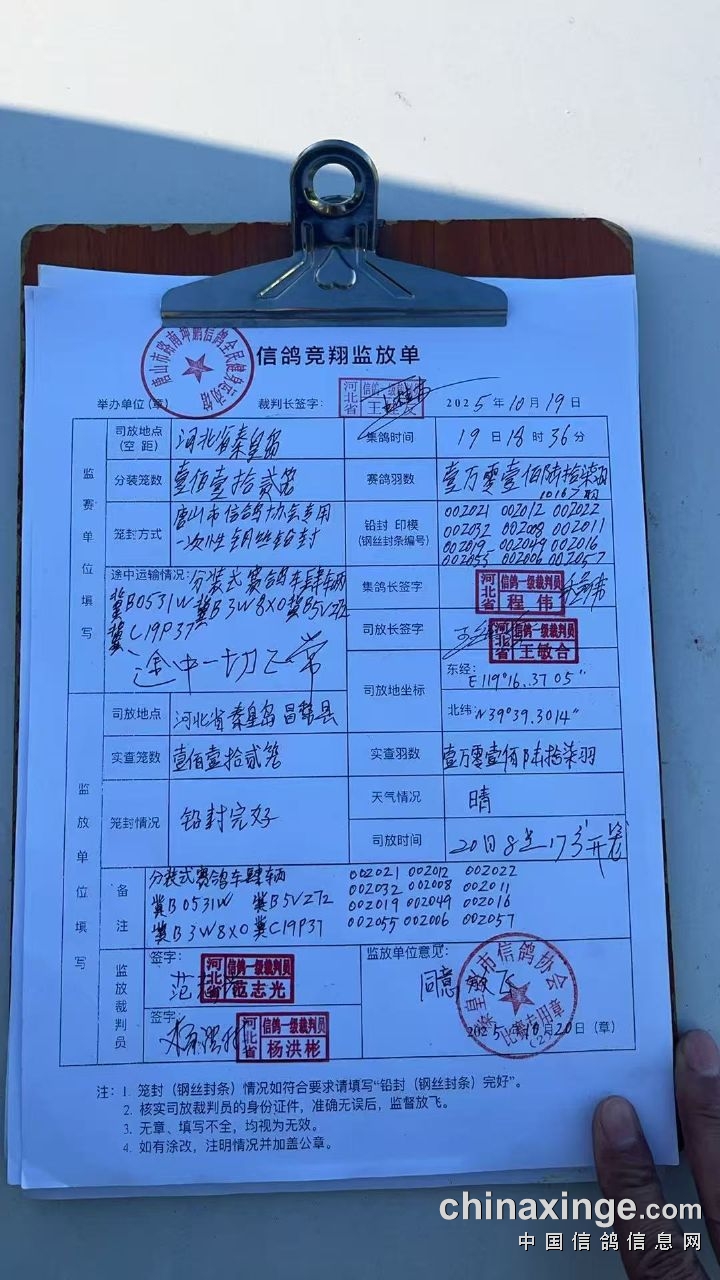 信鸽竞翔监放单
唐山市路南坤鹏信鸽全民健身运动
举办单位(章) 裁判长签字: 河北省 信鸽一级裁判员 2025年10月19日
监赛单位填写
司放地点(空距) 河北省秦皇岛 集鸽时间 19日18时36分
分装笼数 壹佰壹拾贰笼 赛鸽羽数 壹万零壹佰陆拾柒羽
10167羽
笼封方式 唐山市信鸽协会专用
一次性钢丝铅封
铅封 印模(钢丝封条编号) 002021 002012 002022
002032 002008 002011
002019 002049 002016
002055 002006 002057
途中运输情况: 分装式赛鸽车肆车辆
冀B0531W 冀B3W8X0 冀B5V272
冀C19P37
途中一切正常
集鸽长签字 河北省 信鸽一级裁判员 程伟
司放长签字 河北省 信鸽一级裁判员 王敏合
司放地坐标 东经: E119°16.3705"
北纬: N39°39.3014"
监放单位填写
司放地点 河北省秦皇岛昌黎县
实查笼数 壹佰壹拾贰笼 实查羽数 壹万零壹佰陆拾柒羽
笼封情况 铅封完好 天气情况 晴
司放时间 20日8点17分开笼
备注 分装式赛鸽车肆车辆 002021 002012 002022
002032 002008 002011
冀B0531W 冀B5V272 002019 002049 002016
冀B3W8X0 冀C19P37 002055 002006 002057
监放裁判员
签字: 河北省 信鸽一级裁判员 范志光
签字: 杨洪彬 河北省 信鸽一级裁判员 杨洪彬
监放单位意见:
同意
秦皇岛市信鸽协会
比赛专用章
(2)
2025年10月20日(章)
注: 1. 笼封(钢丝封条)情况如符合要求请填写“铅封(钢丝封条)完好”。
2. 核实司放裁判员的身份证件,准确无误后,监督放飞。
3. 无章、填写不全,均视为无效。
4. 如有涂改,注明情况并加盖公章。
chinaxinge.com
中国信鸽信息网